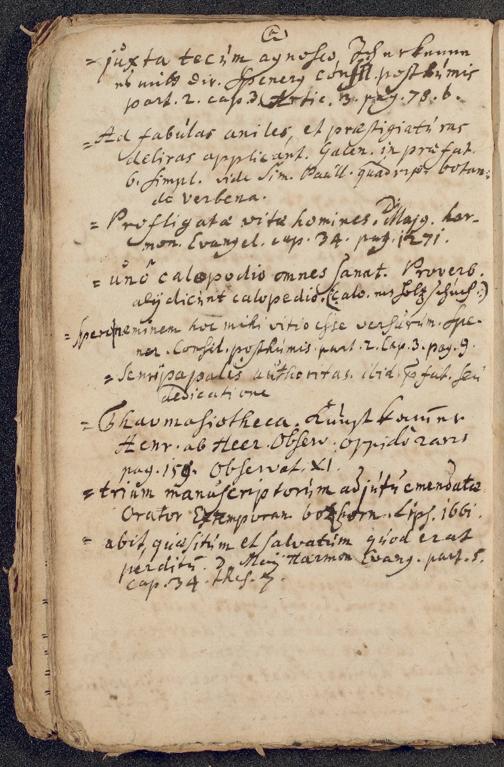 = juxta tecum agnosco, Ich erkenne
es mit dir. Speneri consil. posthumis
part. 2. cap. 3. Artic. 3. pag. 78. b.
= Ad fabulas aniles, et præstigiaturas
deliras applicant. Galen. in præfat.
6. simpl. vide Sim. Paull. quadrip. botan:
de verbena.
= Profligatæ vitæ homines. D. Majg. har-
mon. Evangel. cap. 34. pag. 1271.
= unô calopodio omnes sanat. Proverb.
alij dicunt calopedio.
= Spero neminem hoc mihi vitio esse versurum. Spe-
ner. Consil. posthumis. part. 2. Cap. 3. pag. 9.
= Semipapalis authoritas. ibid. præfat. seu
dedicatione
= Thavmasiotheca. Kunst kammer
Henr. ab Heer. Observ. oppidò raris
pag. 159. Observat. XI.
= trium manuscriptorum adjutu emendatæ
Orator Extemporan. boxhorn. Lips. 1661.
= abit quæsitum et salvatum quod erat
perditū. D. Meij Harmon Evang. part. 5.
cap. 34. thes. 7.